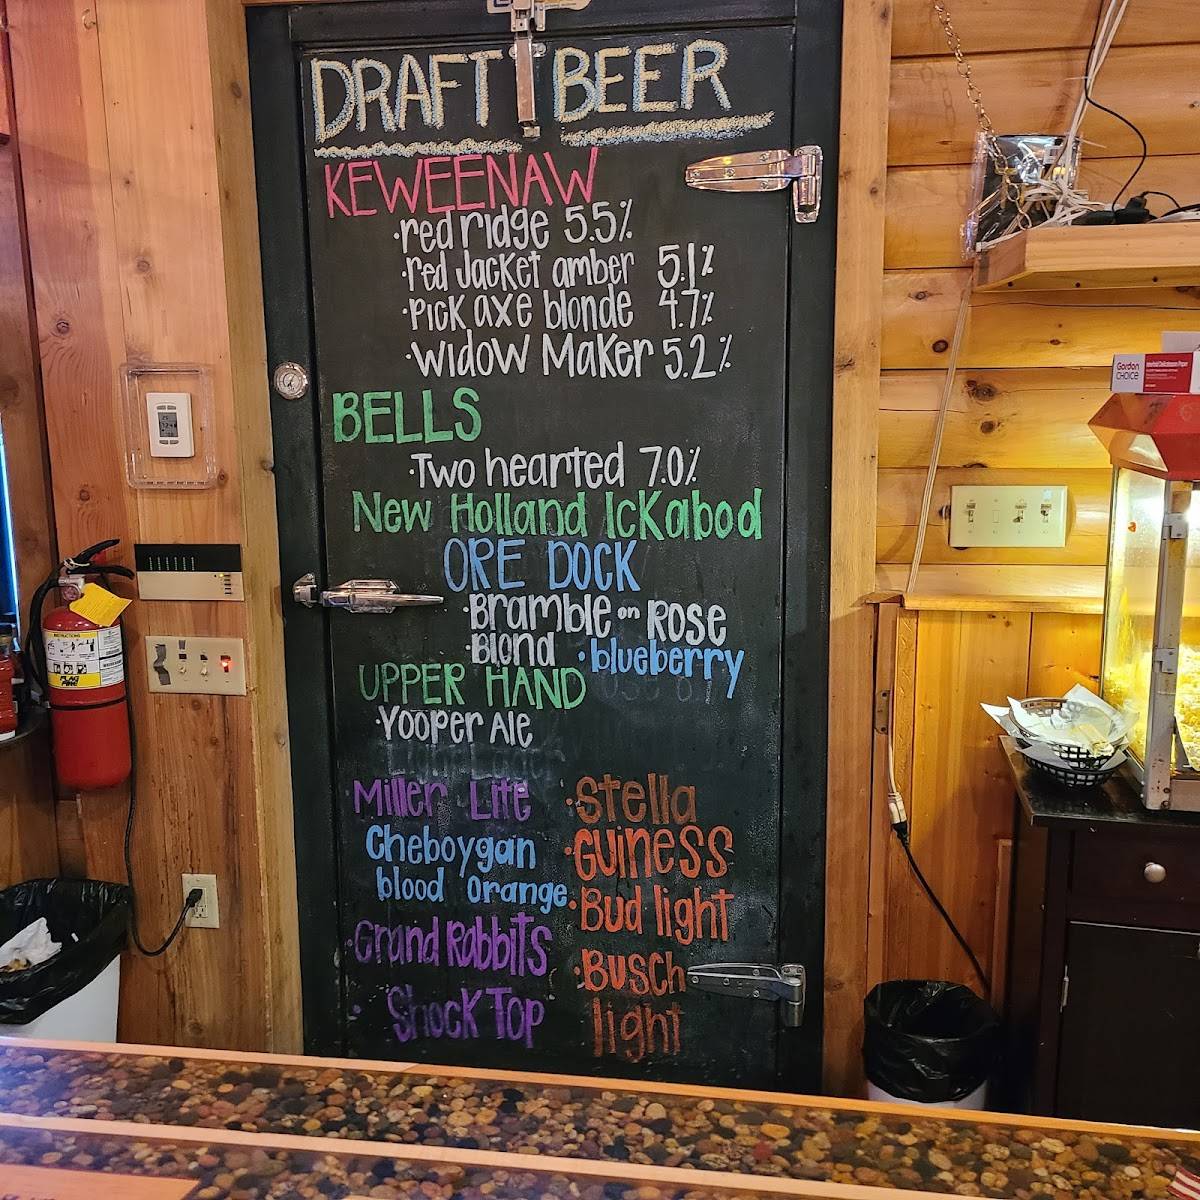 DRAFT BEER
KEWEENAW
·red ridge 5.5%
·red Jacket amber 5.1%
·Pick axe blonde 4.7%
·Widow Maker 5.2%
BELLS
·Two hearted 7.0%
New Holland Ickabod
ORE DOCK
·Bramble on Rose
·Blond ·blueberry
UPPER HAND
·Yooper Ale
Miller Lite
Cheboygan
blood Orange
·Grand Rabbits
·Shock Top
·Stella
·Guiness
·Bud light
·Busch
light
Gordon
CHOICE
INSTRUCTIONS